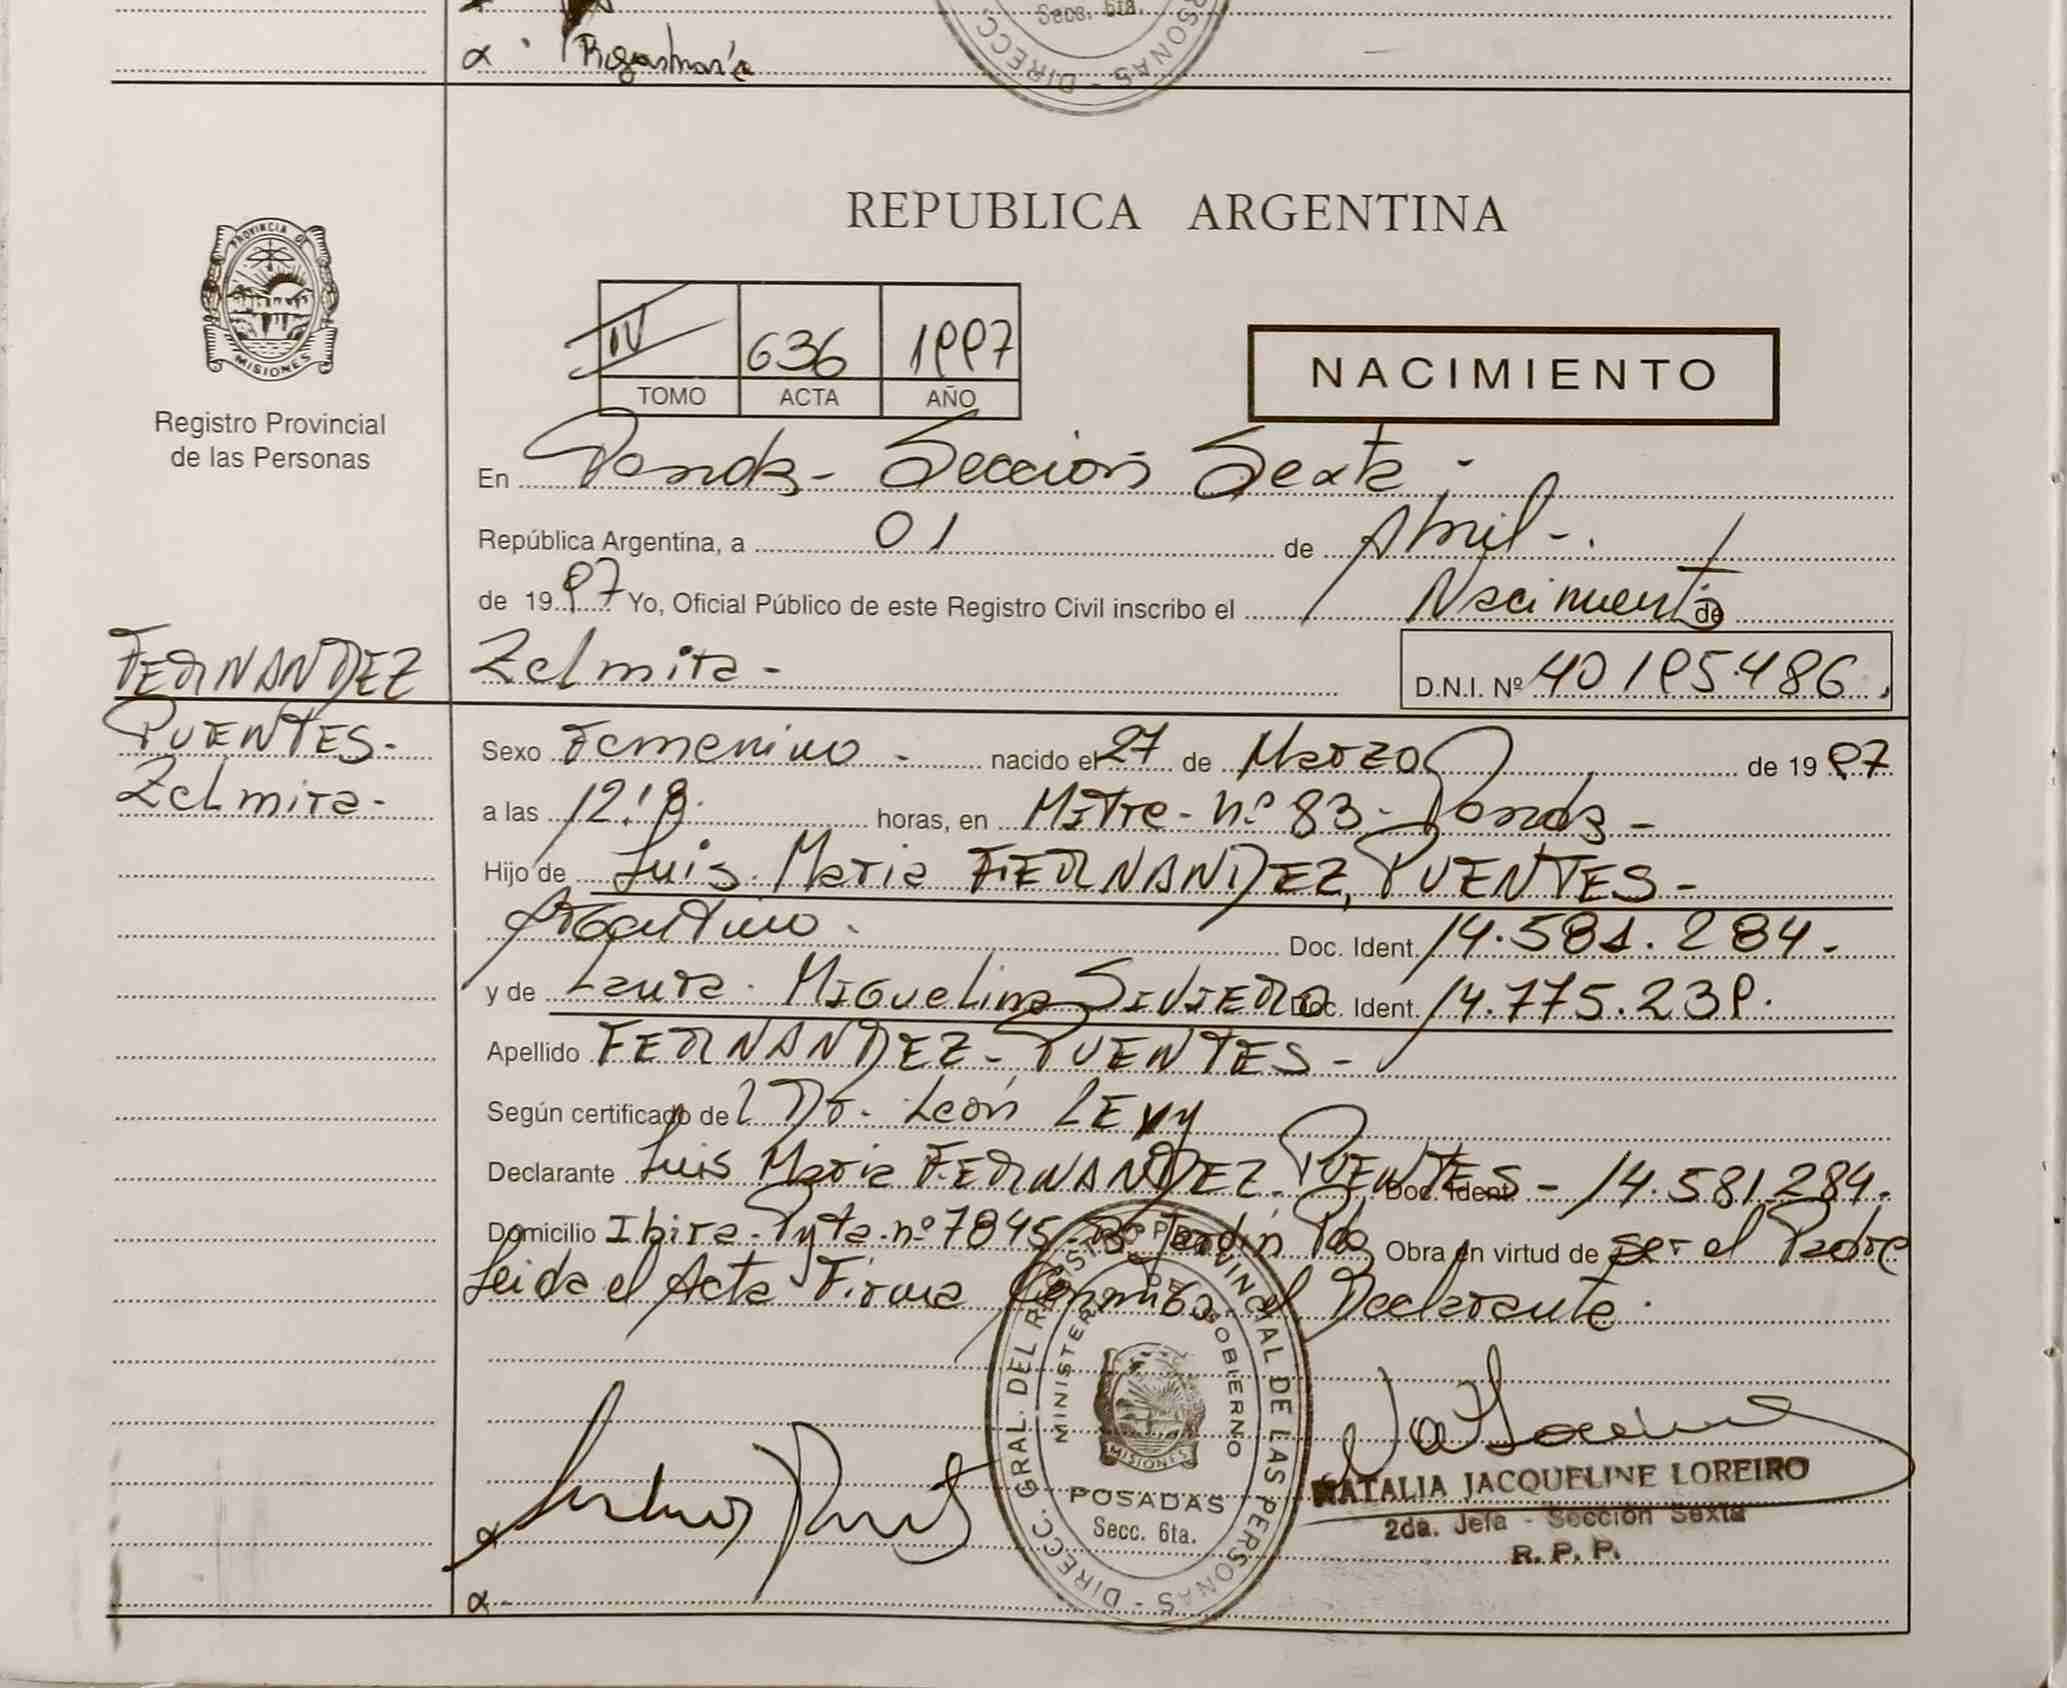 Secc. 6ta.
DIRECC. SONAS
α.
REPUBLICA ARGENTINA
PROVINCIA DE
MISIONES
Registro Provincial
de las Personas
IV 636 1997
TOMO ACTA AÑO
NACIMIENTO
En Posadas - Sección Sexta -
República Argentina, a 01 de Abril -.
de 1997 Yo, Oficial Público de este Registro Civil inscribo el Nacimiento de
FERNANDEZ Zelmira - D.N.I. Nº 40195.486.
PUENTES - Sexo Femenino - nacido el 27 de Marzo de 1997
Zelmira - a las 12:18. horas, en Mitre - nº 83 - Posadas -
Hijo de Luis Maria FERNANDEZ PUENTES -
Argentino. Doc. Ident. 14.581.284.
y de Laura Miguelina SIVIERO Doc. Ident. 14.775.239.
Apellido FERNANDEZ - PUENTES -
Según certificado del Dr. León LEVY
Declarante Luis Maria FERNANDEZ PUENTES - Doc. Ident. 14.581.284.
Domicilio Ibira - Pyta - nº 7845 - Bº Jardin Pdas Obra en virtud de ser el Padre
Leida el Acta Firma el Declarante.
DIRECC. GRAL. DEL REGISTRO PROVINCIAL DE LAS PERSONAS
MINISTERIO DE GOBIERNO
MISIONES
POSADAS
Secc. 6ta.
NATALIA JACQUELINE LOREIRO
2da. Jefa - Sección Sexta
R. P. P.
α
α.